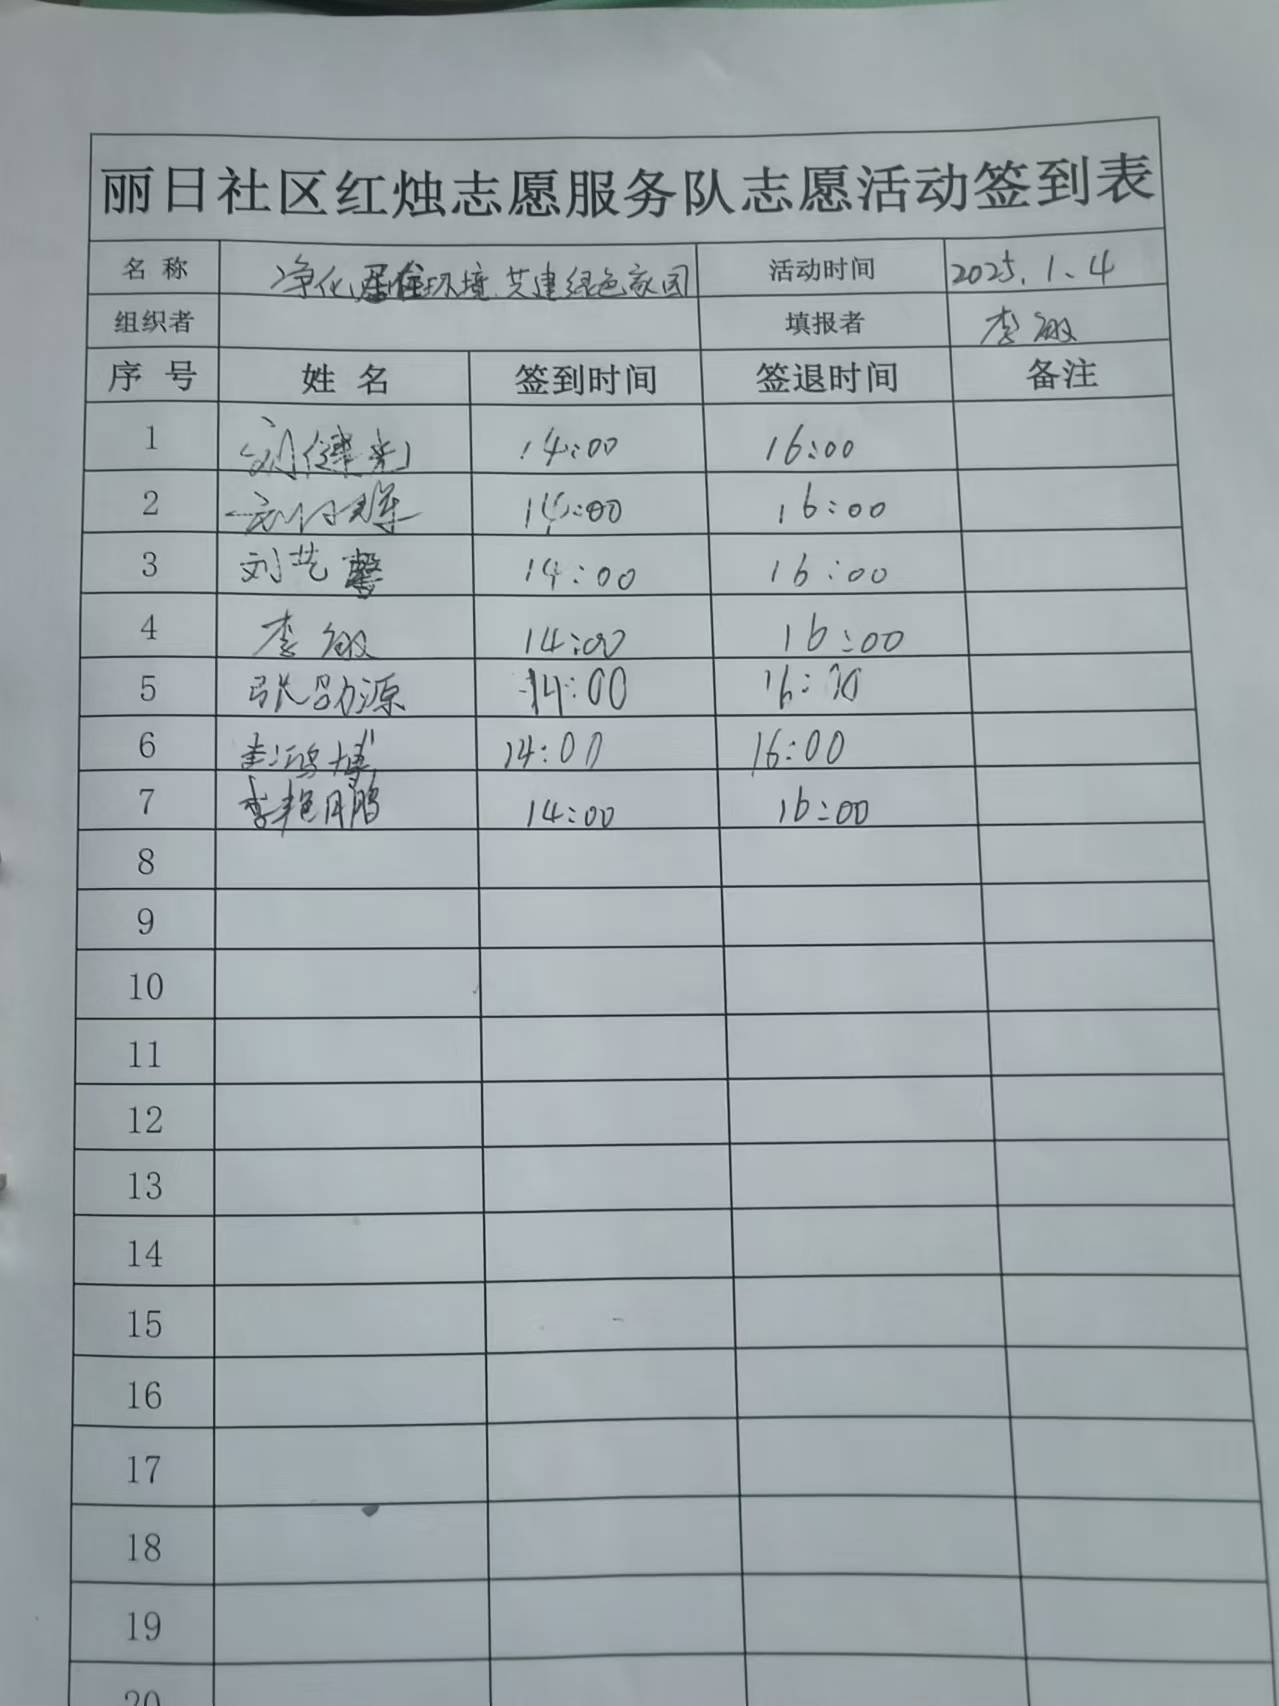 丽日社区红烛志愿服务队志愿活动签到表
名称 净化居住环境.共建绿色家园 活动时间 2025.1.4
组织者 填报者 李敏
序号 姓名 签到时间 签退时间 备注
1 刘健彬 14:00 16:00
2 14:00 16:00
3 刘艺馨 14:00 16:00
4 李敏 14:00 16:00
5 张劭源 14:00 16:00
6 鸿博 14:00 16:00
7 李艳鹏 14:00 16:00
8
9
10
11
12
13
14
15
16
17
18
19
20